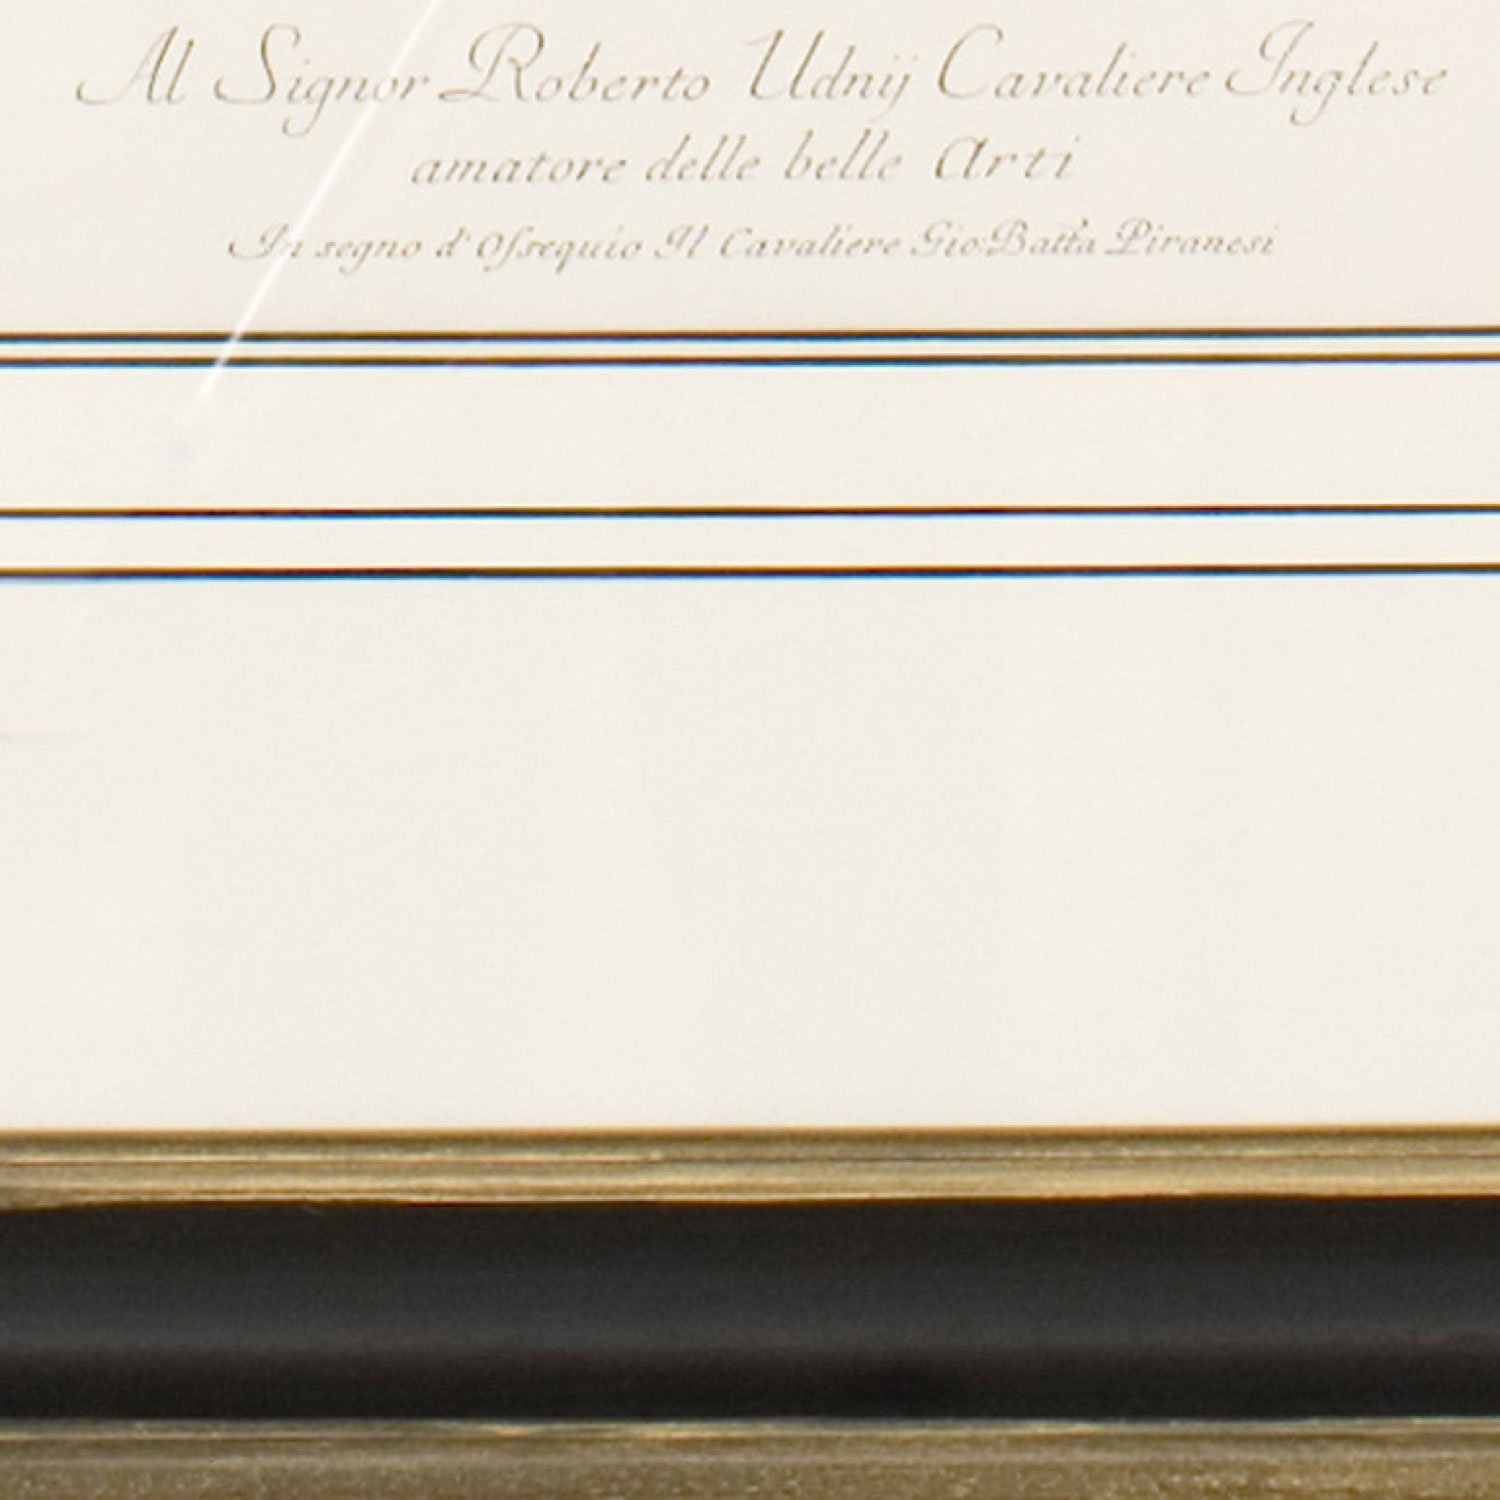 Al Signor Roberto Udnij Cavaliere Inglese
amatore delle belle Arti
In segno d' Ossequio Il Cavaliere Gio: Batt̃a Piranesi